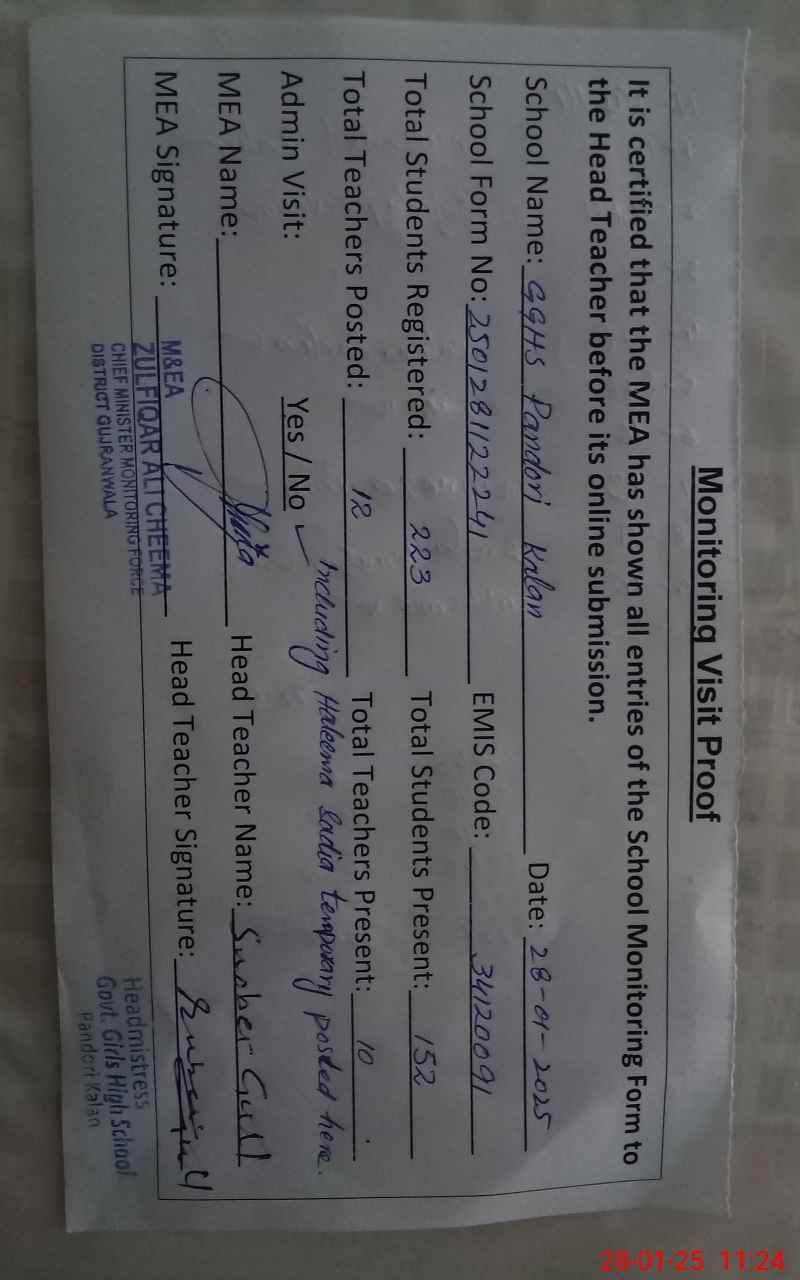 Monitoring Visit Proof
It is certified that the MEA has shown all entries of the School Monitoring Form to
the Head Teacher before its online submission.
School Name: GGHS Pandori Kalan Date: 28-01-2025
School Form No: 250128112241 EMIS Code: 34120091
Total Students Registered: 223 Total Students Present: 152
Total Teachers Posted: 12 Total Teachers Present: 10
Including Haleema Sadia temporary posted here.
Admin Visit: Yes / No ✓
MEA Name: Head Teacher Name: Gull
MEA Signature: Head Teacher Signature:
M&EA
ZULFIQAR ALI CHEEMA
CHIEF MINISTER MONITORING FORCE
DISTRICT GUJRANWALA
Headmistress
Govt. Girls High School
Pandori Kalan
28-01-25 11:24